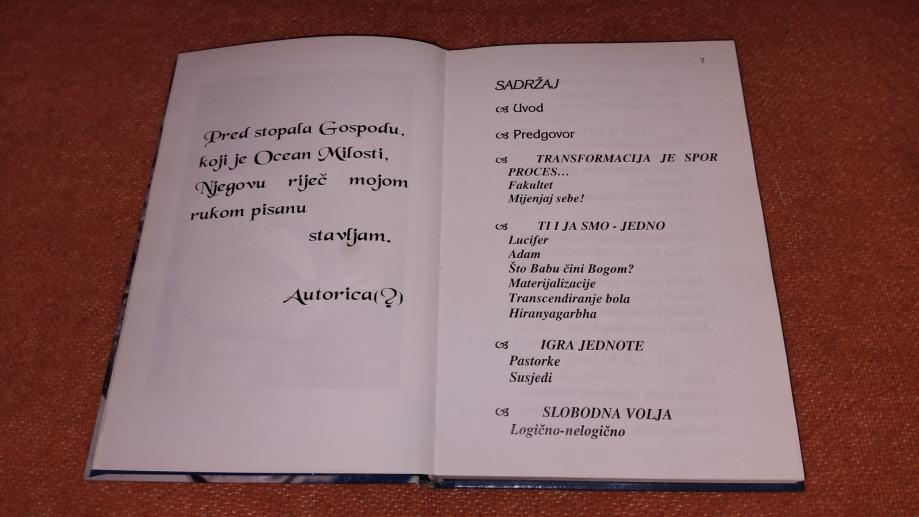 Pred stopala Gospodu,
koji je Ocean Milosti,
Njegovu riječ mojom
rukom pisanu
stavljam.
Autorica(?)
7
SADRŽAJ
Uvod
Predgovor
TRANSFORMACIJA JE SPOR
PROCES...
Fakultet
Mijenjaj sebe!
TI I JA SMO - JEDNO
Lucifer
Adam
Što Babu čini Bogom?
Materijalizacije
Transcendiranje bola
Hiranyagarbha
IGRA JEDNOTE
Pastorke
Susjedi
SLOBODNA VOLJA
Logično-nelogično